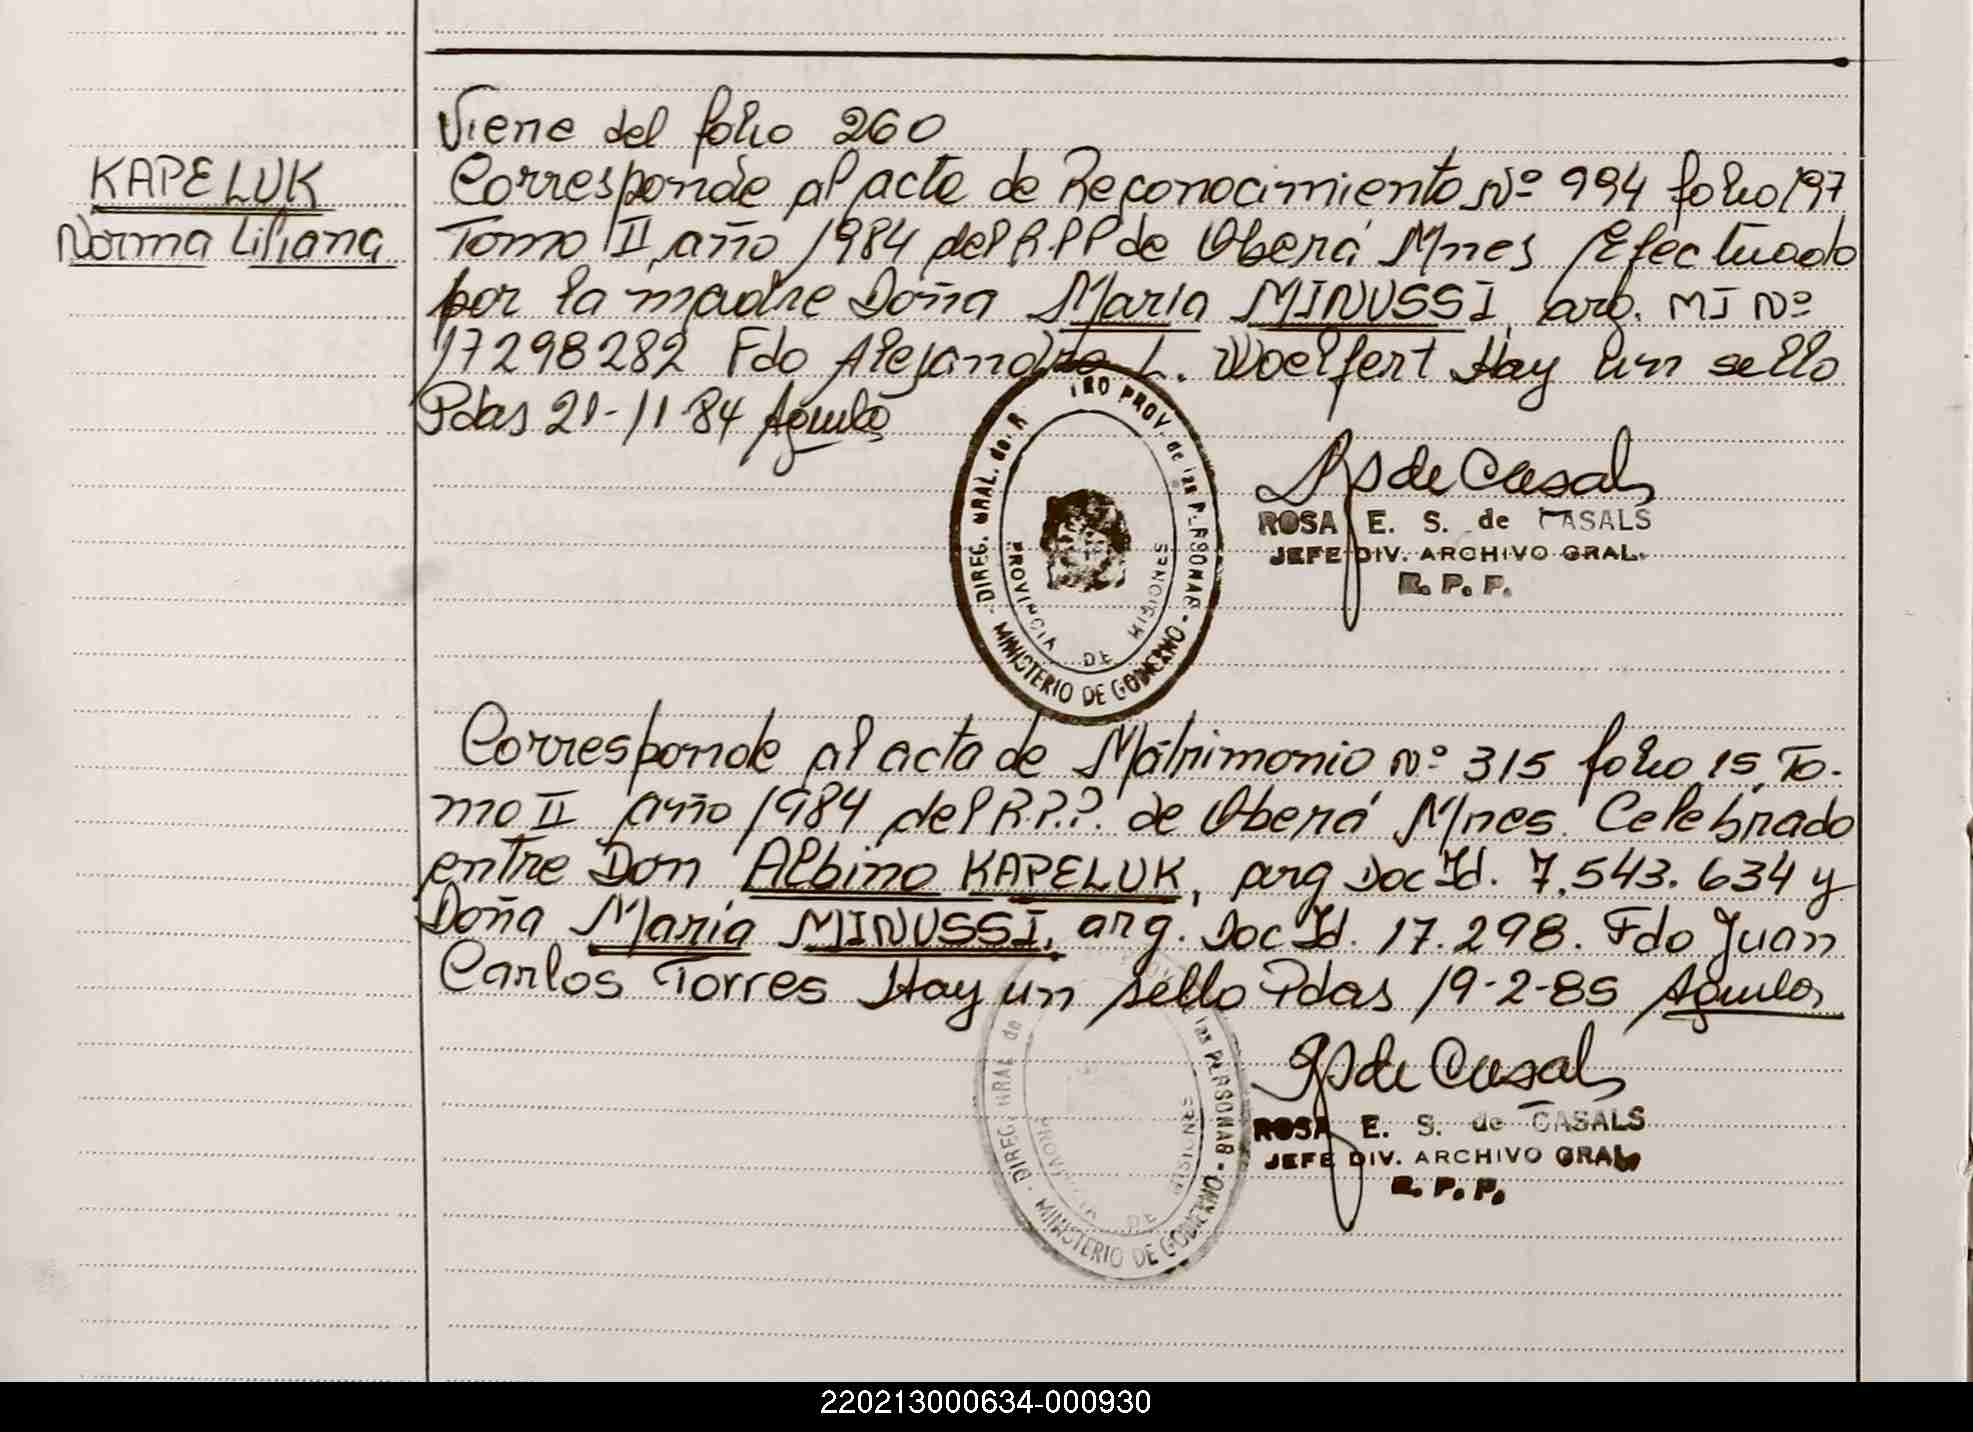 Viene del folio 260
KAPELUK
Norma Liliana
Corresponde al acta de Reconocimiento Nº 994 folio 197
Tomo II, año 1984 del R.P.P de Oberá Mnes Efectuado
por la madre Doña Maria MINUSSI, arg. MI Nº
17298282 Fdo Alejandro L. Woelfert Hay un sello
Pdas 21-11-84 Aguilo
DIREG. GRAL. de R IRO PROV. de las PERSONAS - MINISTERIO DE GOBIERNO -
PROVINCIA DE MISIONES
RS de Casals
ROSA E. S. de CASALS
JEFE DIV. ARCHIVO GRAL.
R. P. P.
Corresponde al acta de Matrimonio Nº 315 folio 15, To-
mo II año 1984 del R.P.P. de Oberá Mnes. Celebrado
entre Don Albino KAPELUK, arg Doc Id. 7.543.634 y
Doña Maria MINUSSI, arg. Doc Id. 17.298. Fdo Juan
Carlos Torres Hay un sello Pdas 19-2-85 Aguilo
DIREG. GRAL de PROV. de las PERSONAS - MINISTERIO DE GOBIERNO -
PROVINCIA DE MISIONES
RS de Casals
ROSA E. S. de CASALS
JEFE DIV. ARCHIVO GRAL
R. P. P.
220213000634-000930